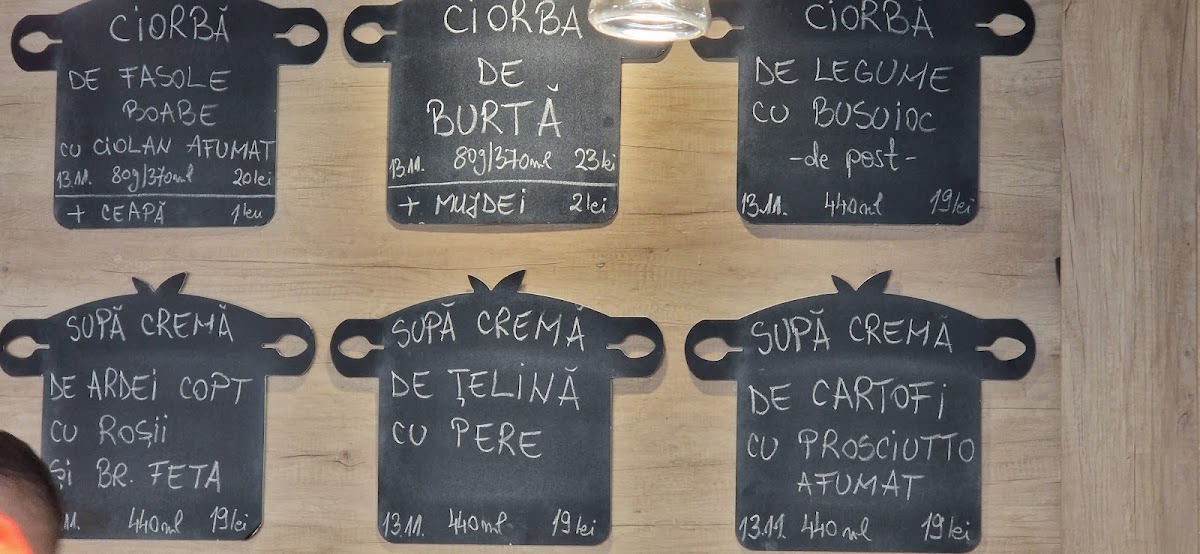 CIORBĂ
DE FASOLE
BOABE
CU CIOLAN AFUMAT
13.11. 80g/370ml 20lei
+ CEAPĂ 1leu
CIORBA
DE
BURTĂ
13.11. 80g/370ml 23lei
+ MUJDEI 2lei
CIORBĂ
DE LEGUME
CU BUSUIOC
-de post-
13.11. 440ml 19lei
SUPĂ CREMĂ
DE ARDEI COPT
CU ROȘII
ȘI BR. FETA
11. 440ml 19lei
SUPĂ CREMĂ
DE ȚELINĂ
CU PERE
13.11. 440ml 19lei
SUPĂ CREMĂ
DE CARTOFI
CU PROSCIUTTO
AFUMAT
13.11. 440ml 19lei